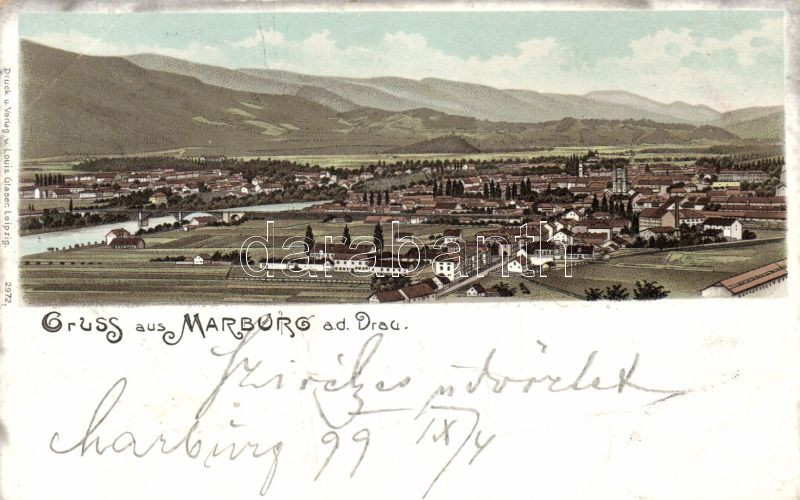 Druck u. Verlag v. Louis Glaser, Leipzig.
2972.
databanth
Gruss aus Marburg a.d. Drau.
Szivélyes üdvözlet
Marburg 99 IX/4